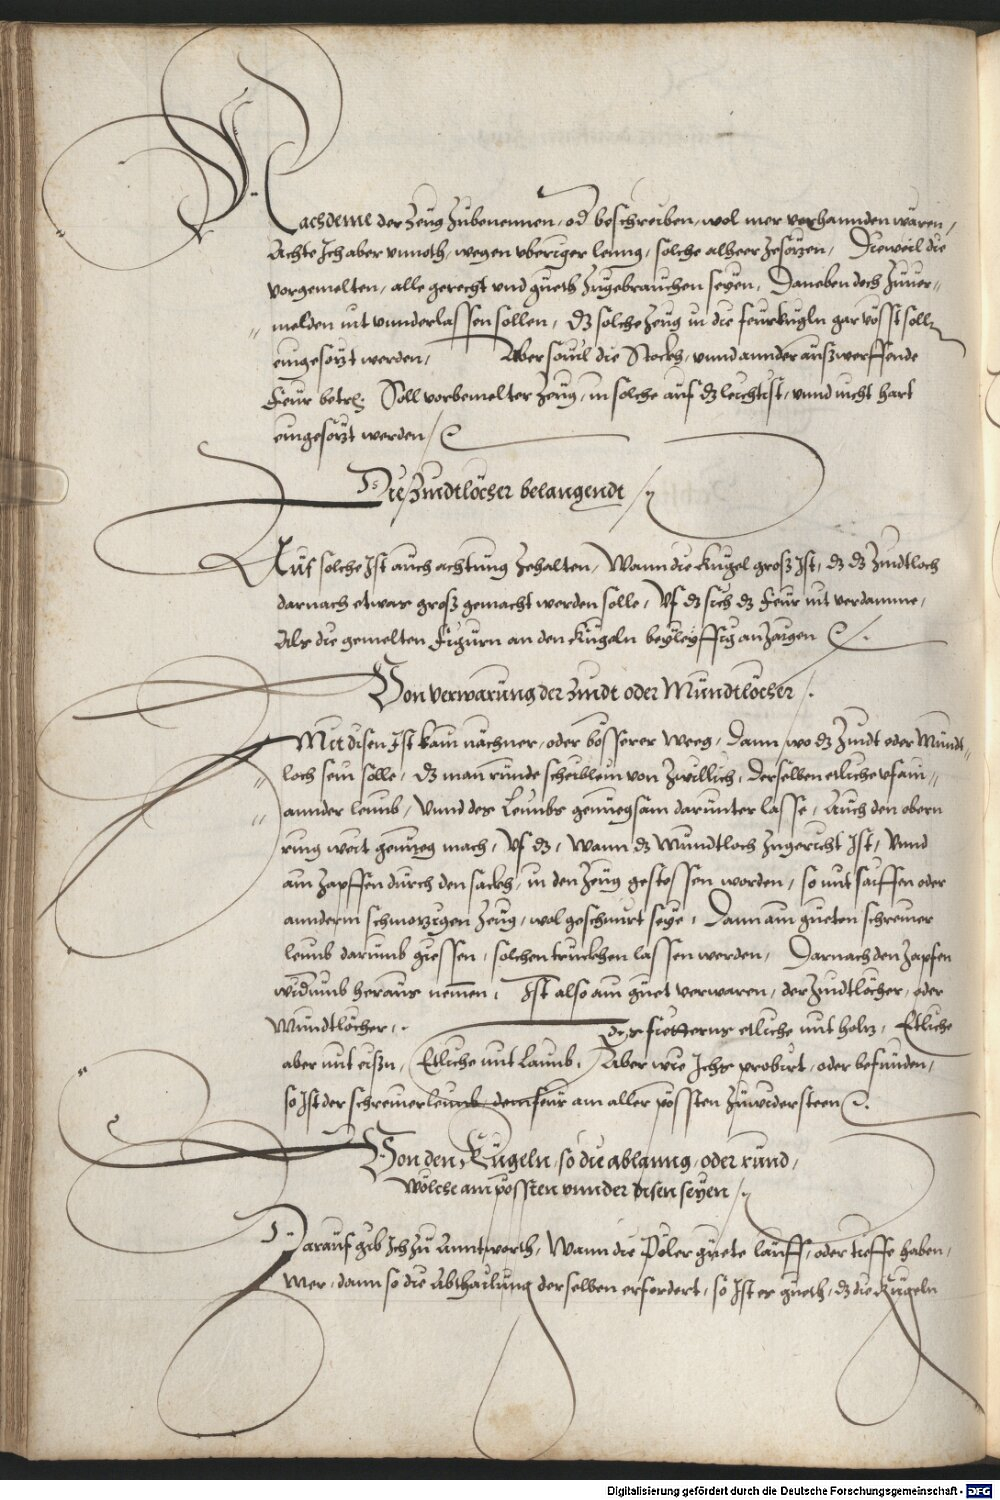 Nachdeme der Zeüg Zübenennen, od beschreiben, wol mer verhannden wären,
Achte Ich aber vnnoth, wegen vberiger leng, solche alheer Zesötzen, Dieweil die
vorgemelten, alle gerecht vnd gueth Zugebrauchen seyen, Daneben doch Züuer=
melden nit vnnderlassen sollen, Dz solche Zeug in die feürkugln gar vösst soll
eingesötzt werden, Aber souil die Stöckh, vnnd annder aüszwerffende
Feür betrf Soll vorbemelter Zeüg, in solche aüf dz leichtist, vnnd nicht hart
eingesötzt werden
Die Zündtlöcher belangendt
Aüf solche Ist aüch achtüng Zehalten, Wann die Kugel grosz Ist, dz dz Zündtloch
darnach etwas grosz gemacht werden solle, Vf dz sich dz Feür nit verdamme,
Als die gemelten Figürn an den Kügeln beyleyffig anZaigen
Von verwarüng der Zündt oder Mündtlöcher
Mit disen Ist kain nächner, oder bösserer Weeg, Dann, wo dz Zündt oder Mündt=
loch sein solle, Dz man ründe scheiblein von Zwillich, derselben etliche vfain=
annder leimb, Vnnd des Leimbs genüegsam darünter lasse, Aüch den obern
ring weit genüeg mach, Vf dz, Wann dz Mündtloch Zugericht Ist, Vnnd
ain Zapffen dürch den sackh, in den Zeüg gestossen worden, so mit saiffen oder
annderm schmotzigen Zeüg, wol geschmirt seye, Dann ain güeten schreiner
leimb darümb giessen, solchen truckhen lassen werden, Darnach den Zapfen
widümb heraus nemen, Ist also ain güet verwaren, der Zündtlöcher, oder
Mündtlöcher, des fietterns etliche mit holtz, Etliche
aber mit eissn, Etliche mit Laimb, Aber wie Ichs probirt, oder befünden,
so Ist der schreinerleimb, dem feür am aller vössten Züwidersteen
Von den Kügeln, so die ablanng, oder rund,
Wölche am vössten vnnder disen seyen
Daraüf gib Ich Zü Anntworth, Wann die Pöler güete läüff, oder tieffe haben,
Mer, dann so die Abthailüng derselben erfordert, so Ist er güeth, dz die Kügeln
Digitalisierung gefördert durch die Deutsche Forschungsgemeinschaft - DFG